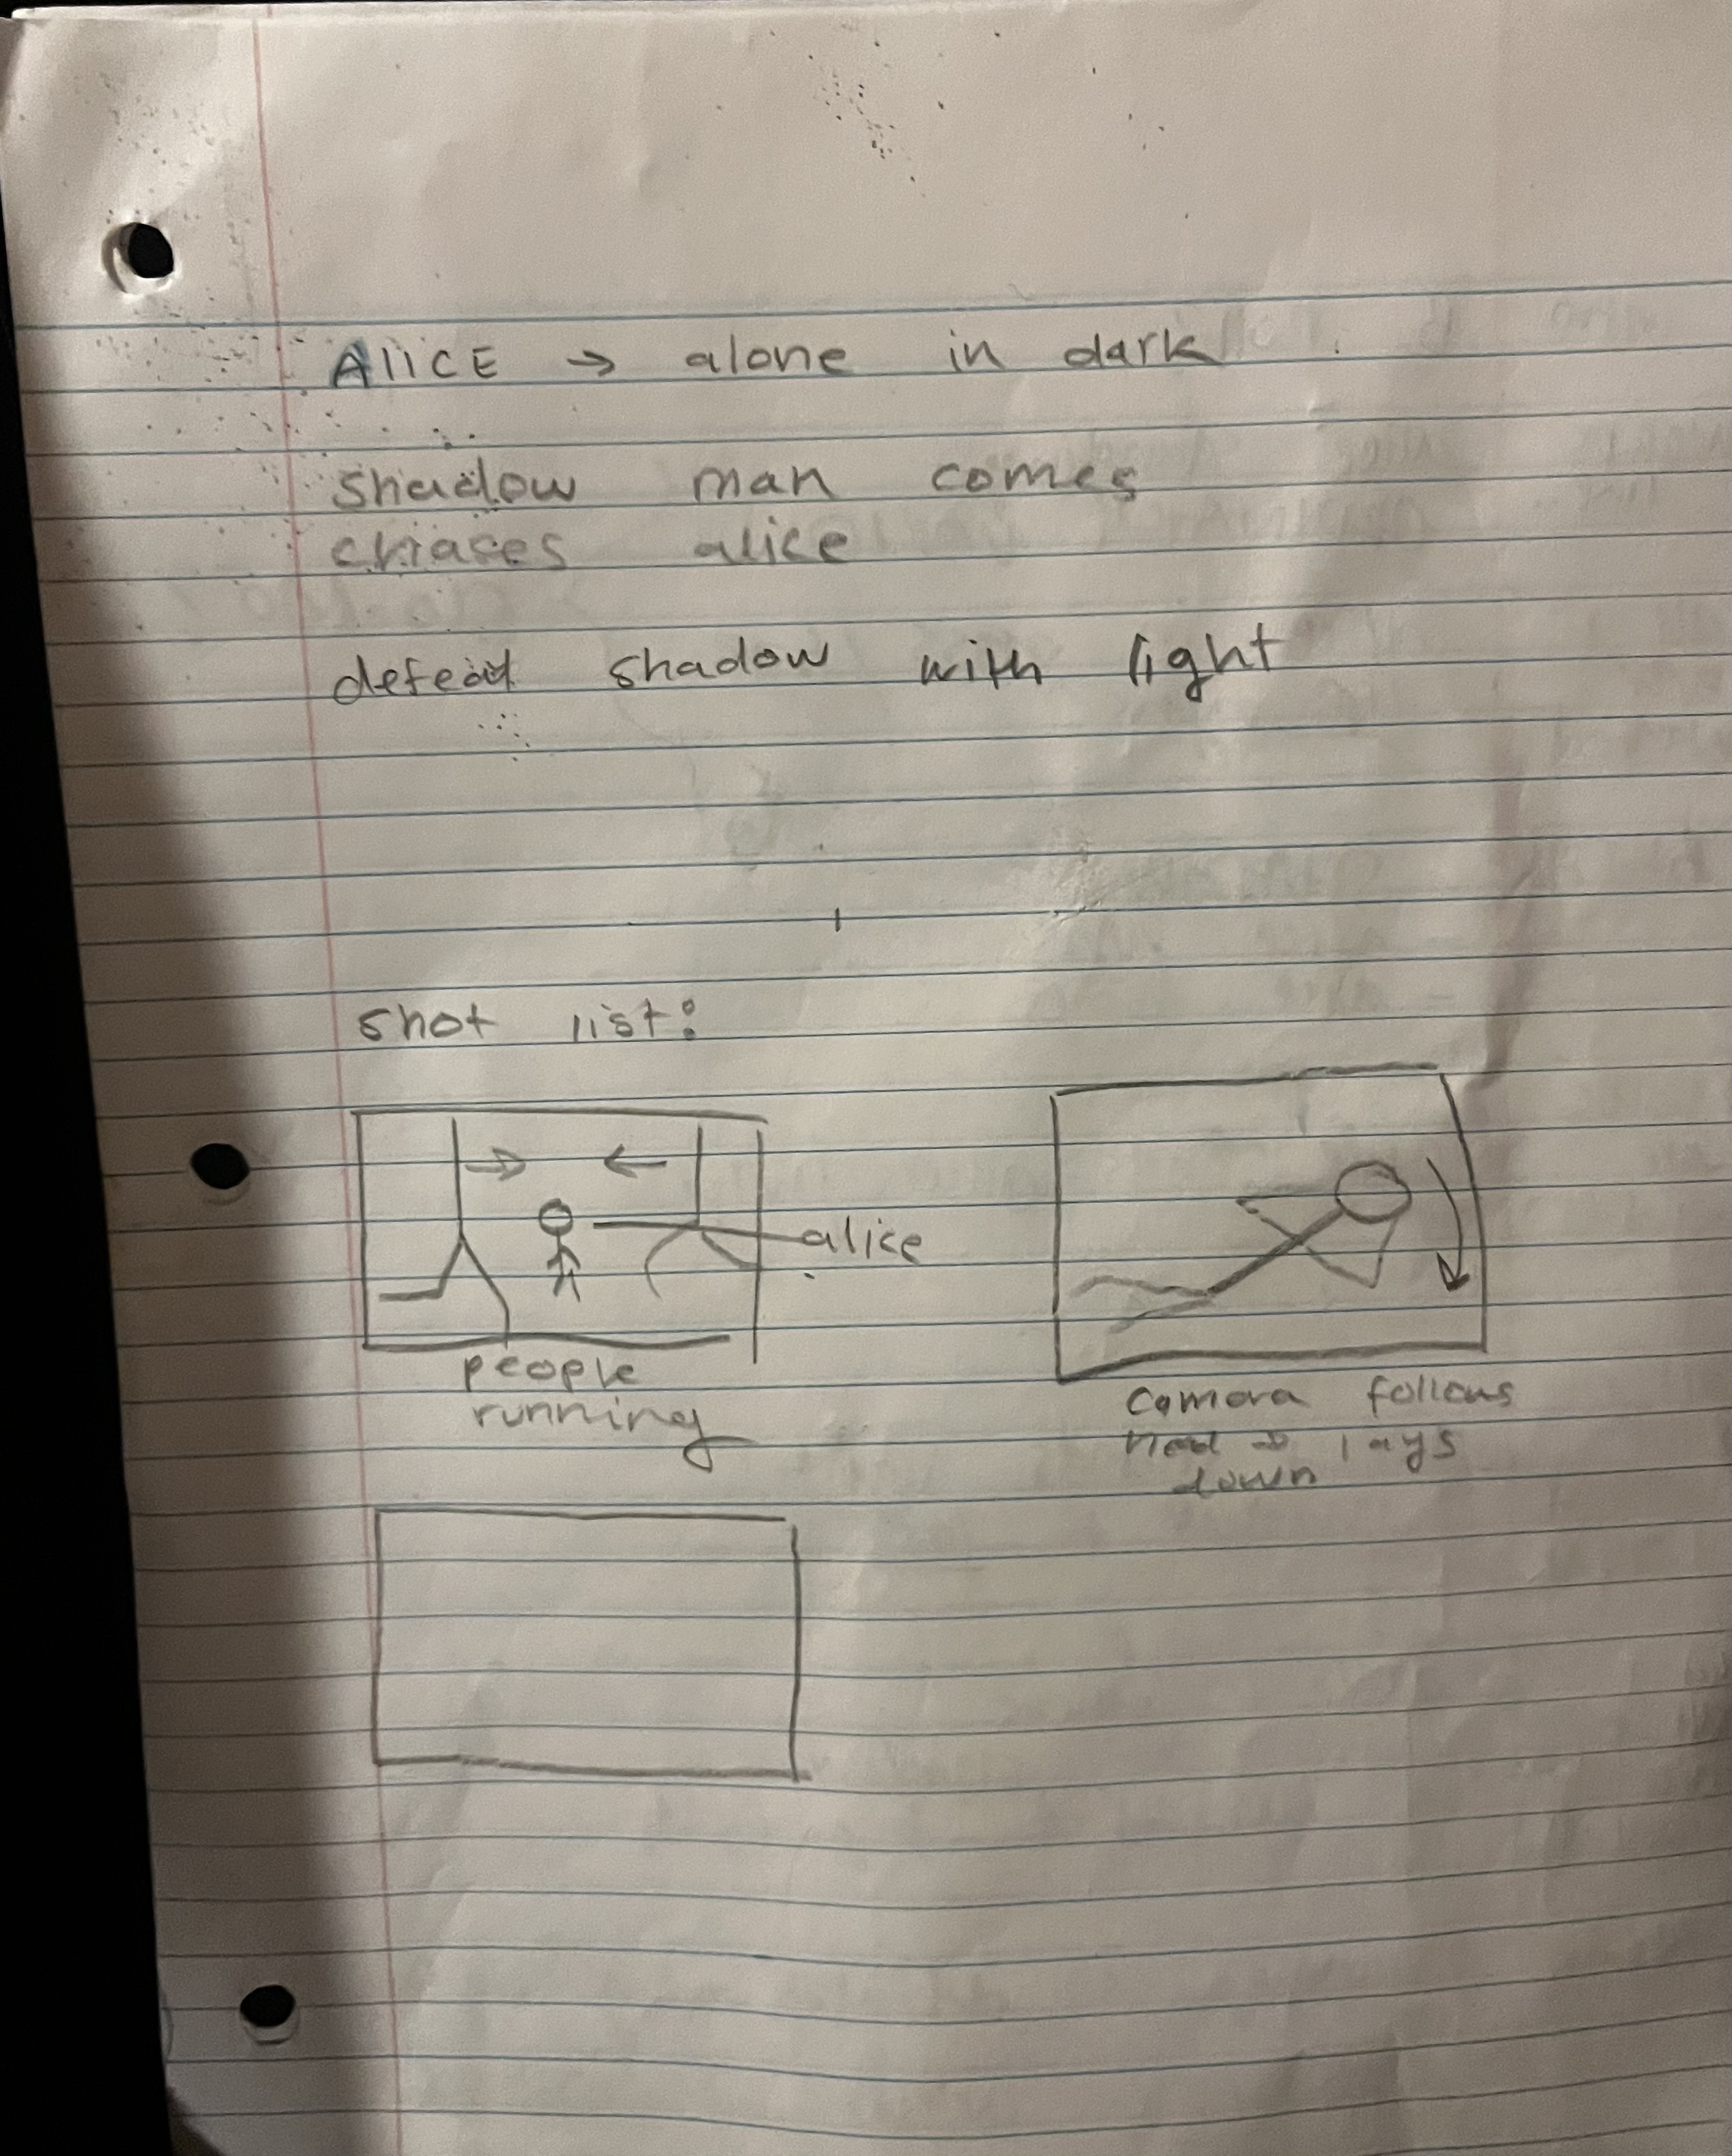 AlICE → alone in dark
shadow man comes
chases alice
defeat shadow with light
shot list:
alice
people
running
camera follows
head → lays
down